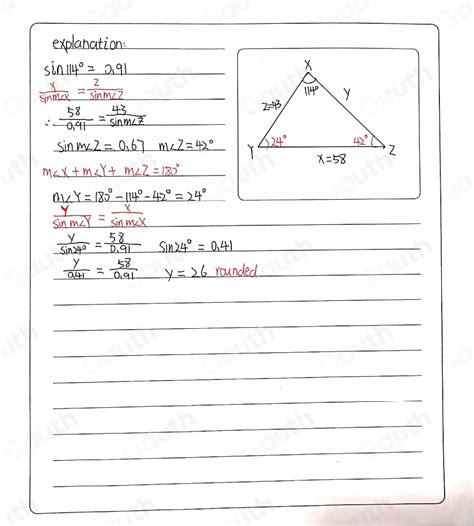 explanation:
sin114° = 0.91
x/sinm∠X = z/sinm∠Z
∴ 58/0.91 = 43/sinm∠Z
sinm∠Z = 0.67 m∠Z = 42°
m∠X + m∠Y + m∠Z = 180°
m∠Y = 180° - 114° - 42° = 24°
Y/sinm∠Y = X/sinm∠X
Y/sin24° = 58/0.91 sin24° = 0.41
Y/0.41 = 58/0.91 Y = 26 rounded
X
114°
Z=43
Y
Y
24°
42°
Z
X=58
Gauth